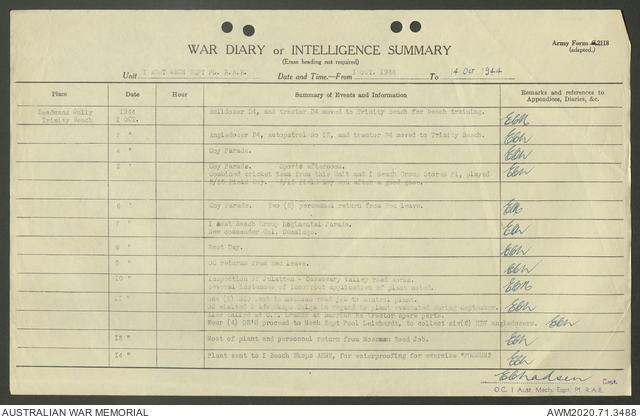 Army Form 2118
(adapted.)
WAR DIARY or INTELLIGENCE SUMMARY
(Erase heading not required)
Unit 1 AUST MECH EQPT PL. R.A.E. Date and Time.—From 1 OCT. 1944 To 14 OCT 1944
Place Date Hour Summary of Events and Information Remarks and references to
Appendices, Diaries, &c.
Deadmans Gully 1944 Bulldozer D4, and tractor D4 moved to Trinity Beach for beach training.
Trinity Beach 1 OCT.
Angledozer D4, autopatrol No 12, and tractor D4 moved to Trinity Beach.
4 " Coy Parade.
5 " Coy Parade. Sports afternoon.
Combined cricket team from this Unit and 1 Beach Group Stores Pl, played
2/16 Field Coy. 2/16 Field Coy won after a good game.
6 " Coy Parade. Two (2) personnel return from Rec leave.
7 " 1 Aust Beach Group Regimental Parade.
New commander Col.
8 " Rest Day.
9 " OC returns from Rec leave.
10 " Inspection of Julatten - Cassowary Valley road works.
Several instances of incorrect application of plant noted.
12 " One (1) NCO sent to Mossman road job to control plant.
OC visited 2 Adv Wksps in regard to plant evacuated during September.
Also called at Mareeba re tractor spare parts.
Four (4) ORs proceed to Mech Eqpt Pool Leichardt, to collect six(6) angledozers.
13 " Most of plant and personnel return from Mossman Road Job.
14 " Plant sent to 1 Beach Wksps AEME, for waterproofing for exercise
Capt.
O.C. 1 Aust. Mech. Eqpt. Pl. R.A.E.
AUSTRALIAN WAR MEMORIAL AWM2020.71.3488